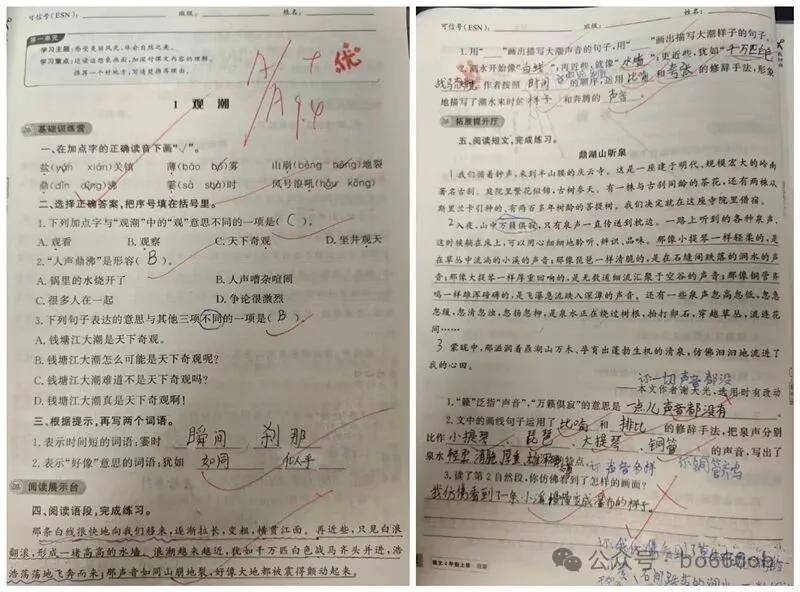 可信号(ESN): 班级: 姓名:
第一单元
学习主题:感受美丽风光,体会自然之美。
学习重点:边读边想象画面,加深对课文内容的理解。
推荐一个好地方,写清楚推荐理由。
A+ 优
A 9.4
1 观 潮
基础训练营
一、在加点字的正确读音下画“√”。
盐(yán xián)关镇 薄(báo bó)雾 山崩(bēng bēng)地裂
鼎(dǐn dǐng)沸 霎(sà shà)时 风号浪吼(hǒu kǒng)
二、选择正确答案,把序号填在括号里。
1.下列加点字与“观潮”中的“观”意思不同的一项是( C )。
A.观看 B.观察 C.天下奇观 D.坐井观天
2.“人声鼎沸”是形容( B )。
A.锅里的水烧开了 B.人声嘈杂喧闹
C.很多人在一起 D.争论很激烈
3.下列句子表达的意思与其他三项不同的一项是( B )。
A.钱塘江大潮是天下奇观。
B.钱塘江大潮怎么可能是天下奇观呢?
C.钱塘江大潮难道不是天下奇观吗?
D.钱塘江大潮真是天下奇观啊!
三、根据提示,再写两个词语。
1.表示时间短的词语:霎时 瞬间 刹那
2.表示“好像”意思的词语:犹如 如同 似乎
阅读展示台
四、阅读语段,完成练习。
那条白线很快地向我们移来,逐渐拉长,变粗,横贯江面。再近些,只见白浪
翻滚,形成一堵高高的水墙。浪潮越来越近,犹如千万匹白色战马齐头并进,浩
浩荡荡地飞奔而来;那声音如同山崩地裂,好像大地都被震得颤动起来。
可信号(ESN): 班级: 姓名:
1.用“ ”画出描写大潮声音的句子,用“ ”画出描写大潮样子的句子。
2.潮水开始像“白线”,再近些,就像“水墙”;更近些,犹如“千万匹白色
战马”。作者按照 时间 的顺序,运用 比喻 和 夸张 的修辞手法,形象
地描写了潮水来时的 样子 和奔腾的 声音。
拓展提升厅
五、阅读短文,完成练习。
鼎湖山听泉
1 我们循着钟声,来到半山腰的庆云寺。这是一座建于明代、规模宏大的岭南
著名古刹。庭院里繁花似锦,古树参天。有一株与古刹同龄的茶花,还有两株从
斯里兰卡引种的、有两百多年树龄的菩提树。我们决定就在这座寺院里借宿。
2 入夜,山中万籁俱寂,只有泉声一直传送到枕边。一路上听到的各种泉声,
这时候躺在床上,可以用心细细地聆听、辨识、品味。那像小提琴一样轻柔的,是
在草丛中流淌的小溪的声音;那像琵琶一样清脆的,是在石缝间跌落的涧水的声
音;那像大提琴一样厚重回响的,是无数道细流汇聚于空谷的声音;那像铜管齐
鸣一样雄浑磅礴的,是飞瀑急流跌入深潭的声音。还有一些泉声忽高忽低,忽急
忽缓,忽清忽浊,忽扬忽抑,是泉水正在绕过树根,拍打卵石,穿越草丛,流连花
间……
3 蒙眬中,那滋润着鼎湖山万木,孕育出蓬勃生机的清泉,仿佛汩汩地流进了
我的心田。
订一切声音都没
——本文作者谢大光,选用时有改动
1.“籁”泛指“声音”,“万籁俱寂”的意思是 一点儿声音都没有
2.文中的画线句子运用了 比喻 和 排比 的修辞手法,把泉声分别
比作 小提琴、琵琶、大提琴、铜管 的声音,写出了
泉水 轻柔、清脆、厚重、 特点。 订声音多样 订铜管齐鸣
3.读了第2自然段,你仿佛看到了怎样的画面?
我仿佛看到了一条小溪慢慢变成瀑布的样子。
语文4年级上册
公众号·bo666ob